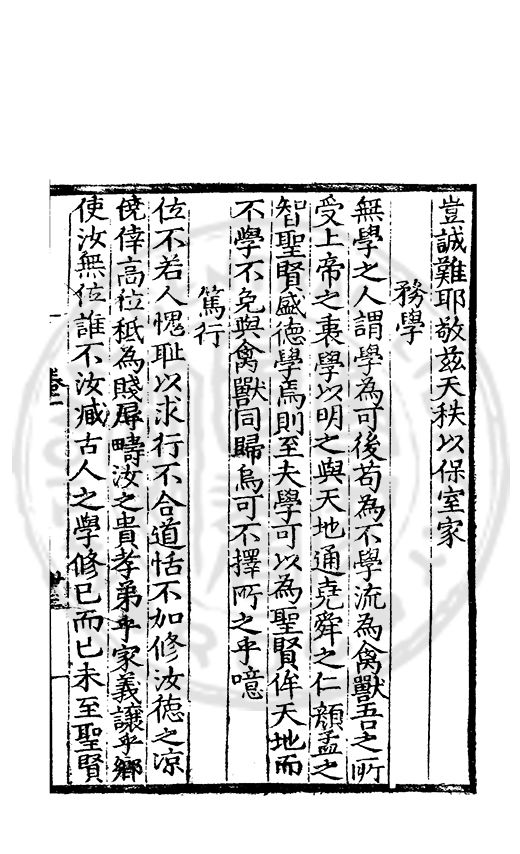 豈誠難耶敬兹天秩以保室家
務學
無學之人謂學為可後苟為不學流為禽獸吾之所
受上帝之衷學以明之與天地通堯舜之仁顔孟之
智聖賢盛德學焉則至夫學可以為聖賢侔天地而
不學不免與禽獸同歸烏可不擇所之乎噫
篤行
位不若人愧耻以求行不合道恬不加修汝徳之涼
僥倖高位秪為賤辱疇汝之貴孝弟乎家義讓乎鄉
使汝無位誰不汝臧古人之學修已而已未至聖賢
卷一